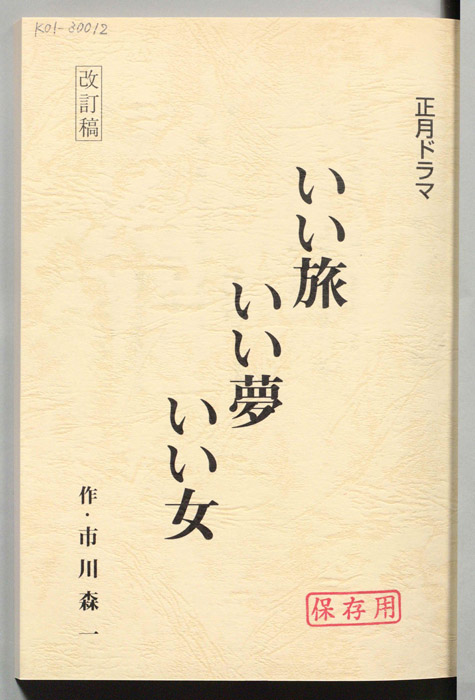 K01-30012
正月ドラマ
いい旅
いい夢
いい女
改訂稿
作・市川森一
保存用